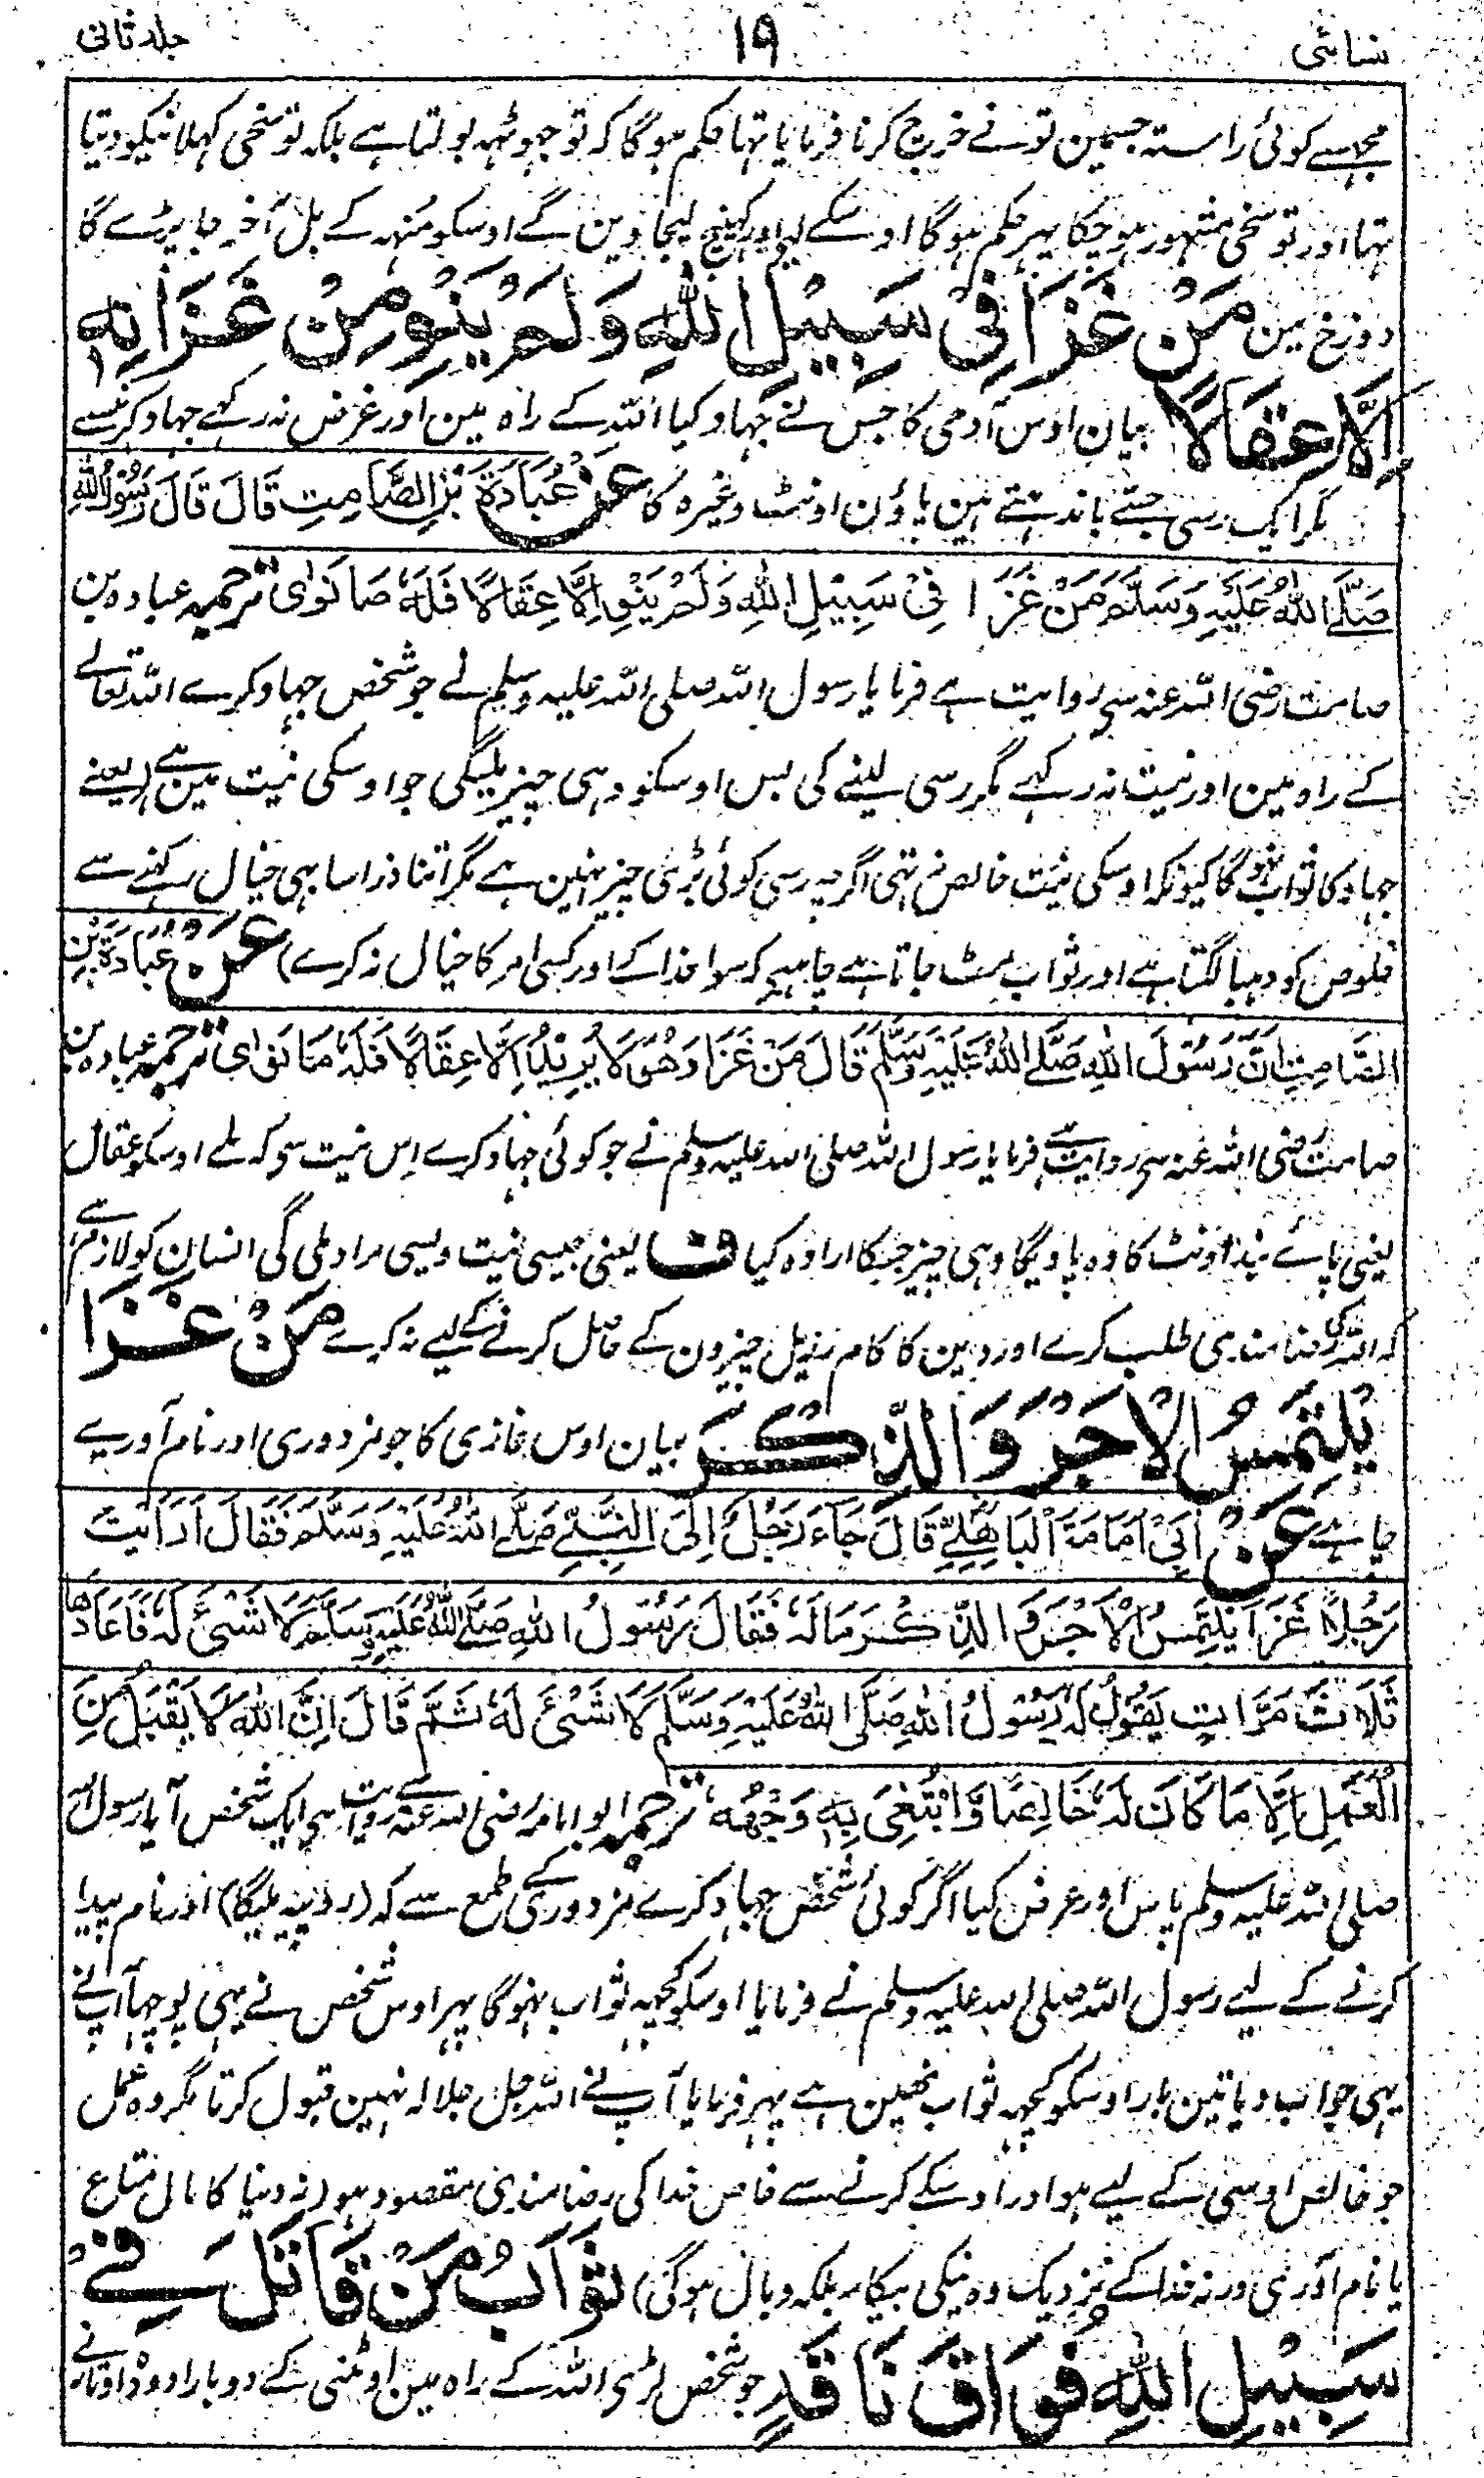 نسائی ۱۹ جلد ثانی
مجہسے کوئی راستہ جسمین تو نے خرچ کرنا فرمایا تہا حکم ہوگا کہ تو جہوٹہہ بولتا ہے بلکہ تو سخی کہلانیکو دیتا
تہا اور تو سخی مشہور ہو چکا پہر حکم ہوگا اوسکے لیے اور کہینچ لیجاوین گے اوسکو مُنہہ کے بل آخر جا پڑے گا
دوزخ مین مَنْ غَزَا فِیْ سَبِیْلِ اللّٰهِ وَلَمْ یَنْوِ مِنْ غَزَاتِهٖ
اِلَّا عِقَالًا بیان اوس آدمی کا جس نے جہاد کیا اللہ کے راہ مین اور غرض نہ رکہے جہاد کرنیسے
مگر ایک رسی جسے باندہتے ہین پاؤن اونٹ وغیرہ کا عَنْ عُبَادَةَ بْنِ الصَّامِتِ قَالَ قَالَ رَسُوْلُ اللّٰهِ
صَلَّى اللّٰهُ عَلَیْهِ وَسَلَّمَ مَنْ غَزَا فِیْ سَبِیْلِ اللّٰهِ وَلَمْ یَنْوِ اِلَّا عِقَالًا فَلَهٗ مَا نَوٰى ترجمہ عبادہ بن
صامت رضی اللہ عنہ سی روایت ہے فرمایا رسول اللہ صلی اللہ علیہ وسلم نے جو شخص جہاد کرے اللہ تعالے
کے راہ مین اور نیت نہ رکہے مگر رسی لینے کی بس اوسکو وہی چیز ملیگی جو اوسکی نیت مین ہے (یعنے
جہاد کا ثواب نہوگا کیونکہ اوسکی نیت خالص نہ تہی اگرچہ رسی کوئی بڑی چیز نہین ہے مگر اتنا ذرا سا بہی خیال رکہنے سے
خلوص کو دہبا لگتا ہے اور ثواب مٹ جاتا ہے چاہیے کہ سوا خدا کے اور کسی امر کا خیال نہ کرے) عَنْ عُبَادَةَ بْنِ
الصَّامِتِ اَنَّ رَسُوْلَ اللّٰهِ صَلَّى اللّٰهُ عَلَیْهِ وَسَلَّمَ قَالَ مَنْ غَزَا وَهُوَ لَا یُرِیْدُ اِلَّا عِقَالًا فَلَهٗ مَا نَوٰى ترجمہ عبادہ بن
صامت رضی اللہ عنہ سی روایت ہے فرمایا رسول اللہ صلی اللہ علیہ وسلم نے جو کوئی جہاد کرے اس نیت سی کہ ملے اوسکو عقال
یعنی پائے بند اونٹ کا وہ پاویگا وہی چیز جسکا ارادہ کیا ف یعنی جیسی نیت ویسی مراد ملی گی انسان کو لازم ہے
کہ اللہ کی رضا مندی طلب کرے اور دین کا کام رذیل چیزون کے حاصل کرنے کے لیے نہ کرے مَنْ غَزَا
یَلْتَمِسُ الْاَجْرَ وَالذِّكْرَ بیان اوس غازی کا جو مزدوری اور نام آوریے
چاہے عَنْ اَبِیْ اُمَامَةَ الْبَاهِلِیِّ قَالَ جَآءَ رَجُلٌ اِلَى النَّبِیِّ صَلَّى اللّٰهُ عَلَیْهِ وَسَلَّمَ فَقَالَ اَرَاَیْتَ
رَجُلًا غَزَا یَلْتَمِسُ الْاَجْرَ وَالذِّكْرَ مَا لَهٗ فَقَالَ رَسُوْلُ اللّٰهِ صَلَّى اللّٰهُ عَلَیْهِ وَسَلَّمَ لَا شَیْئَ لَهٗ فَاَعَادَهَا
ثَلَاثَ مَرَّاتٍ یَقُوْلُ لَهٗ رَسُوْلُ اللّٰهِ صَلَّى اللّٰهُ عَلَیْهِ وَسَلَّمَ لَا شَیْئَ لَهٗ ثُمَّ قَالَ اِنَّ اللّٰهَ لَا یَقْبَلُ مِنَ
الْعَمَلِ اِلَّا مَا كَانَ لَهٗ خَالِصًا وَّابْتُغِیَ بِهٖ وَجْهُهٗ ترجمہ ابو امامہ رضی اللہ عنہ سے روایت ہی ایک شخص آیا رسول اللہ
صلی اللہ علیہ وسلم پاس اور عرض کیا اگر کوئی شخص جہاد کرے مزدوری کے طمع سے کہ (روپیہ ملیگا) اور نام پیدا
کرنے کے لیے رسول اللہ صلی اللہ علیہ وسلم نے فرمایا اوسکو کچہہ ثواب نہوگا پہر اوس شخص نے یہی پوچہا آپ نے
یہی جواب دیا تین بار اوسکو کچہہ ثواب نہین ہے پہر فرمایا آپ نے اللہ جل جلالہ نہین قبول کرتا مگر وہ عمل
جو خالص اوسی کے لیے ہو اور اوسکے کرنے سے خاص خدا کی رضا مندی مقصود ہو (نہ دنیا کا مال متاع
یا نام آوری ورنہ خدا کے نزدیک وہ نیکی بیکار بلکہ وبال ہوگی) ثَوَابُ مَنْ قَاتَلَ فِیْ
سَبِیْلِ اللّٰهِ فُوَاقَ نَاقَةٍ جو شخص لڑے اللہ کے راہ مین اونٹنی کے دوبارا